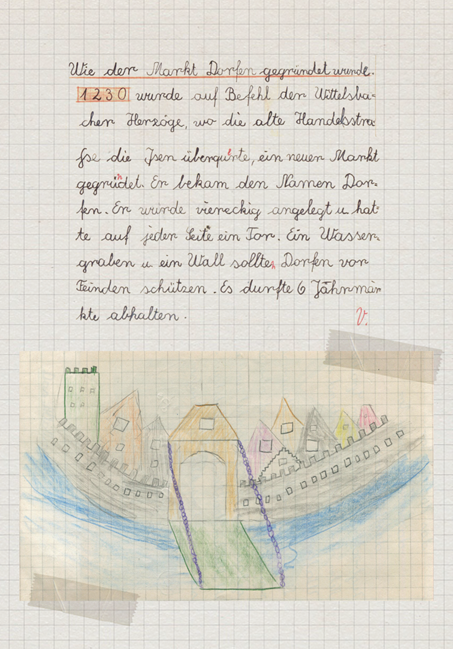 Wie der Markt Dorfen gegründet wurde.
1230 wurde auf Befehl der Wittelsba-
cher Herzöge, wo die alte Handelsstra
ße die Isen überquerte, ein neuer Markt
gegründet. Er bekam den Namen Dor-
fen. Er wurde viereckig angelegt u hat-
te auf jeder Seite ein Tor. Ein Wasser-
graben u ein Wall sollten Dorfen vor
Feinden schützen. Es durfte 6 Jahrmär
kte abhalten.
V.